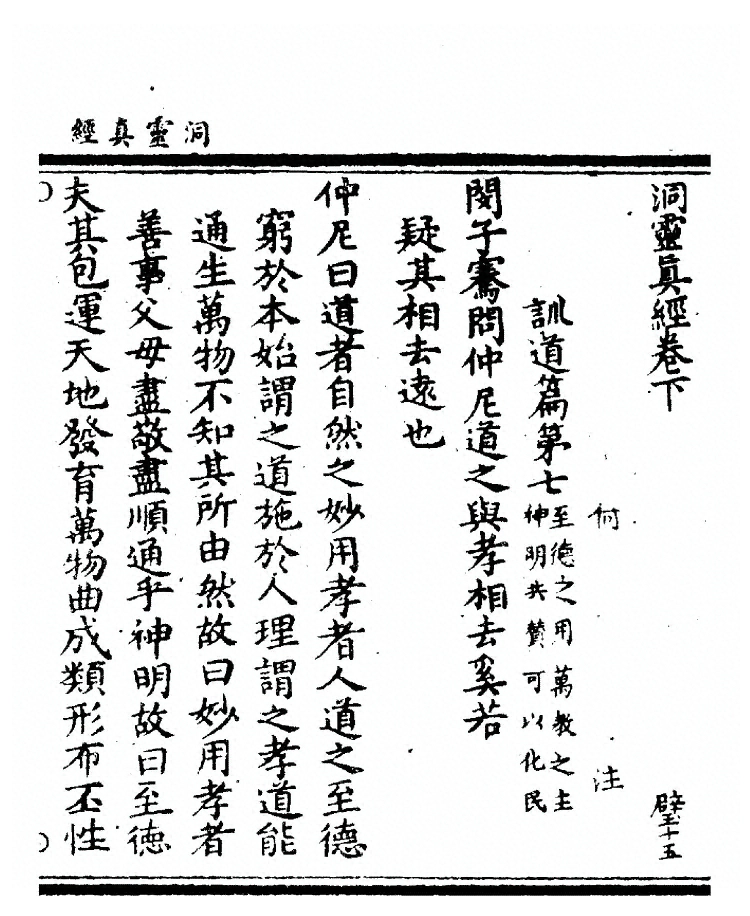 洞靈真經
洞靈真經卷下
璧十五
何
注
訓道篇第七
至德之用萬教之主
神明共贊可以化民
閔子騫問仲尼道之與孝相去奚若
疑其相去遠也
仲尼曰道者自然之妙用孝者人道之至德
窮於本始謂之道施於人理謂之孝道能
通生萬物不知其所由然故曰妙用孝者
善事父母盡敬盡順通乎神明故曰至德
夫其包運天地發育萬物曲成類形布丕性